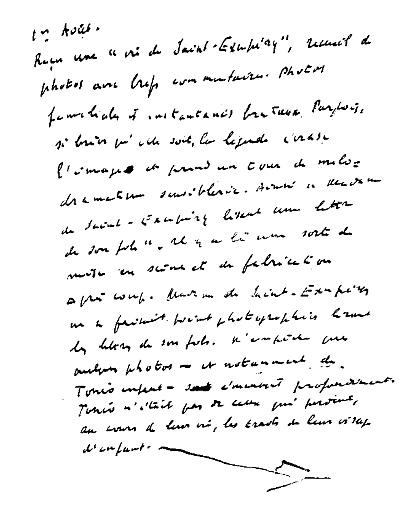 1er Août.
Reçu une "vie de Saint-Exupéry", recueil de
photos avec brefs commentaires. Photos
familiales et instantanés brutaux. Parfois,
si brève qu'elle soit, la légende écrase
l'image et prend un tour de mélo-
dramatique sensiblerie. Ainsi "Madame
de Saint-Exupéry lisant une lettre
de son fils". Il y a là une sorte de
mise en scène et de fabrication
après coup. Madame de Saint-Exupéry
ne se faisait point photographier lisant
les lettres de son fils. N'empêche que
quelques photos - et notamment de
Tonio enfant - émeuvent profondément.
Tonio n'était pas de ceux qui perdent,
au cours de leur vie, les traits de leur visage
d'enfant.